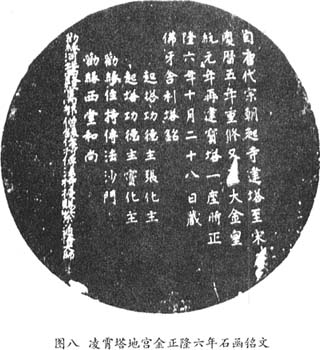 自唐代宗朝起寺建塔至宋
慶曆五年重修又大金皇
統元年再建寶塔一座所正
隆六年十月二十八日藏
佛牙舍利塔銘
起塔功德主張化主
起塔功德主賓化主
勸緣住持傳法沙門
勸緣西堂和尚
勸緣
图八 凌霄塔地宫金正隆六年石函铭文